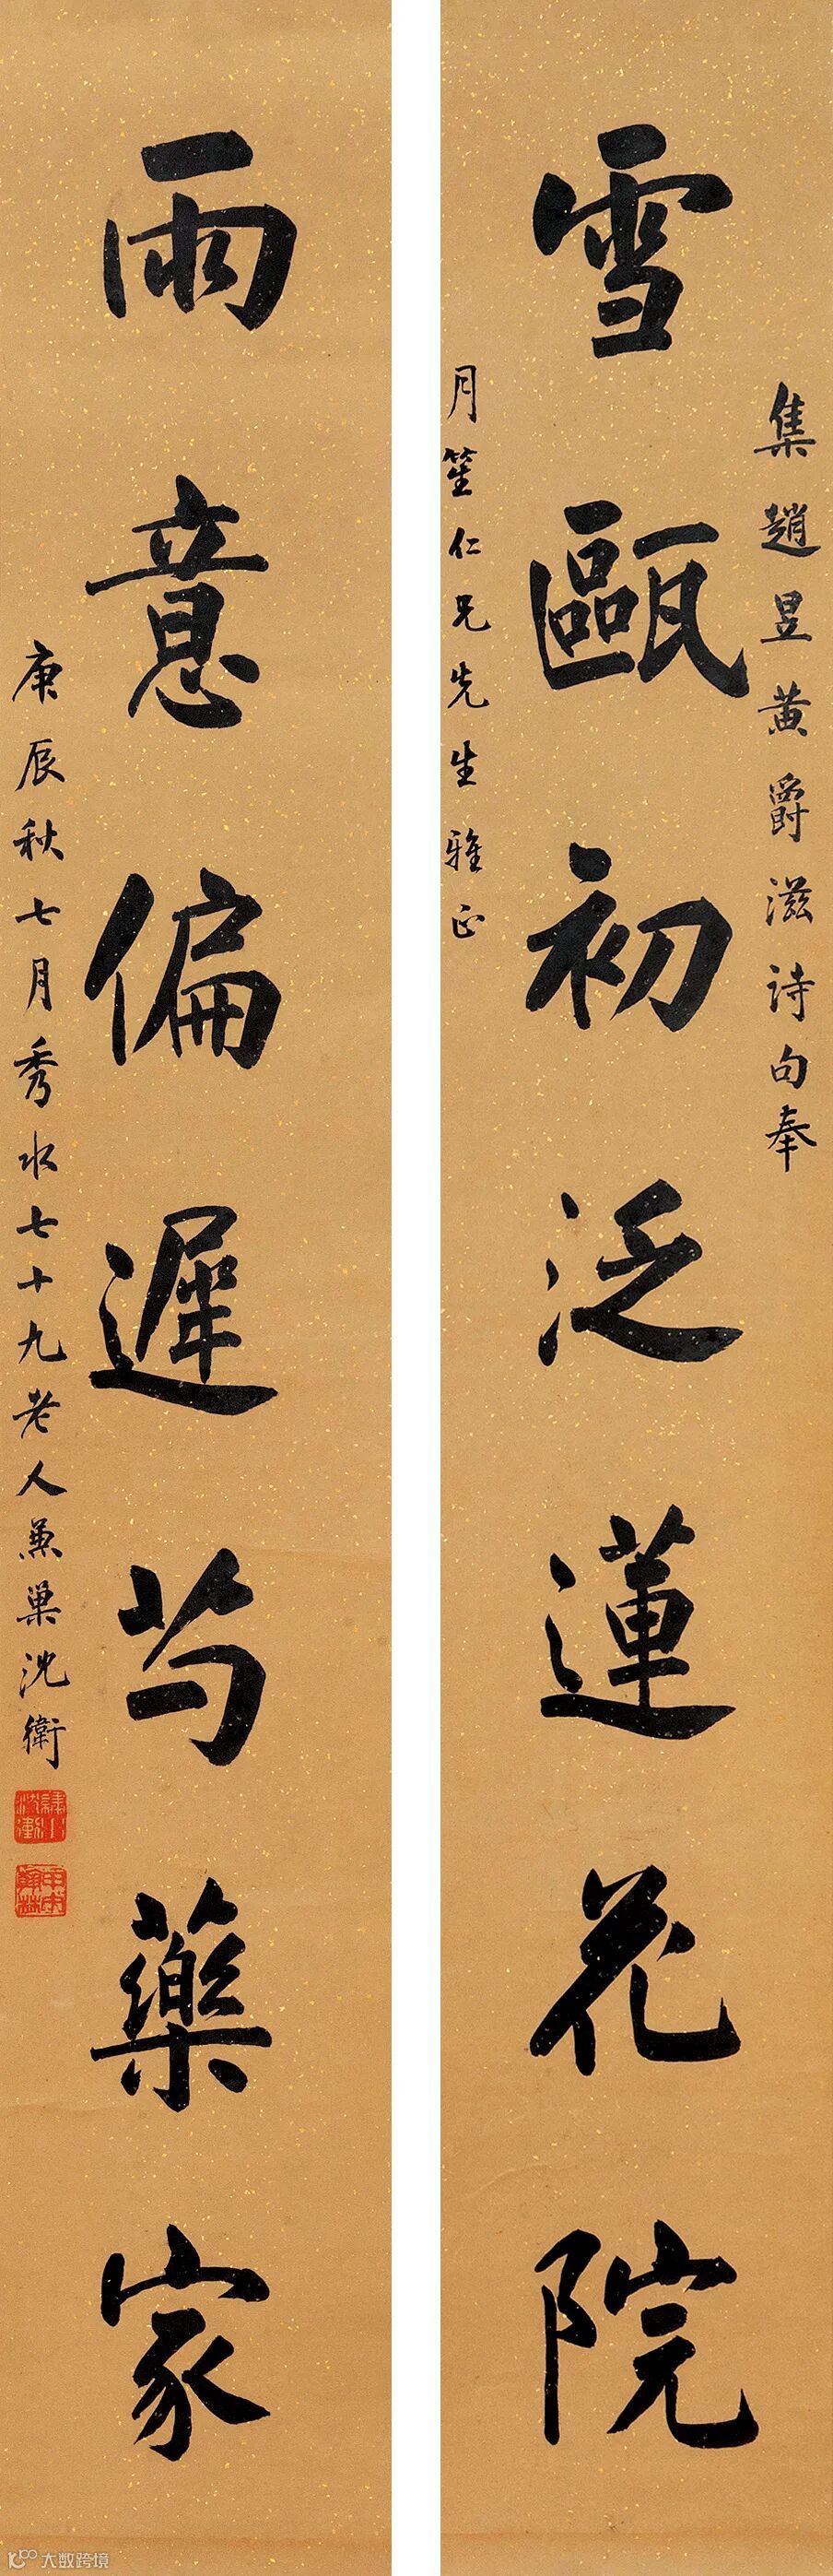 集趙昱黃爵滋诗句奉
雪甌初泛蓮花院
月笙仁兄先生雅正
雨意偏遲芍藥家
庚辰秋七月秀水七十九老人兼巢沈衛
大数跨境